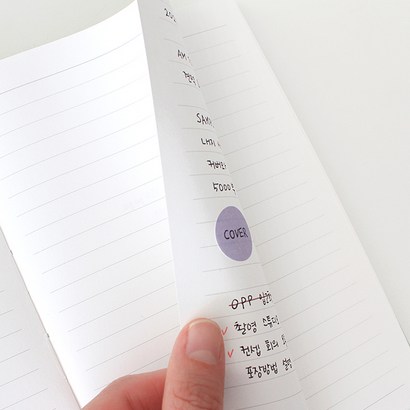 202
AM
SAM
내지
커버
5000
COVER
OPP
✓ 촬영 스튜디
✓ 컨셉 회의
포장방법 설명